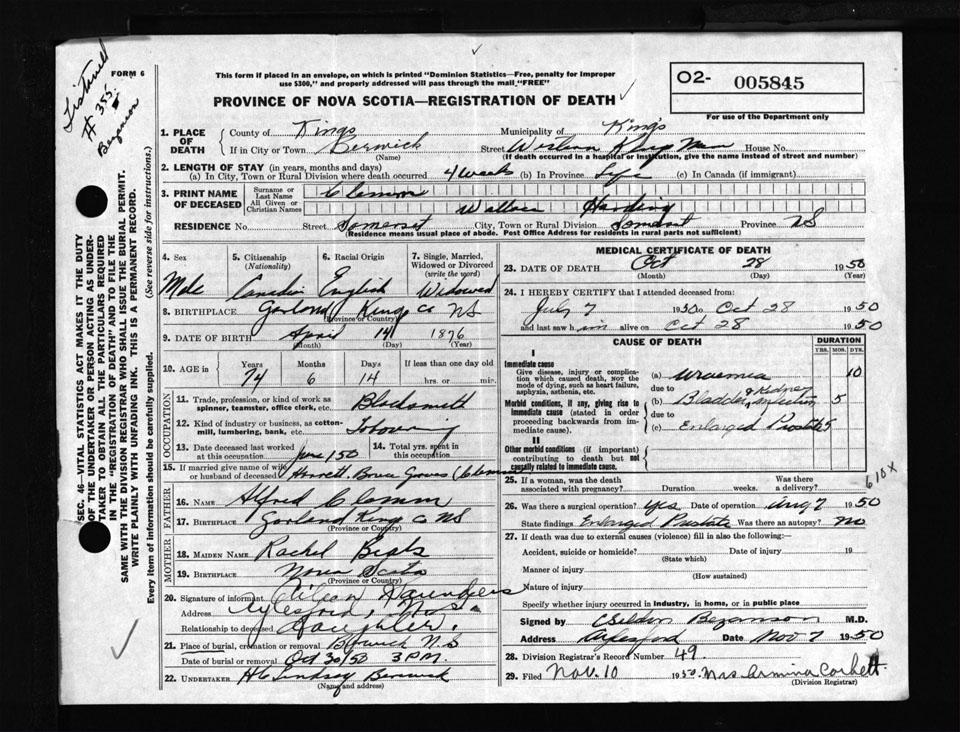 FORM 6
# 355
Bezanson
This form if placed in an envelope, on which is printed "Dominion Statistics—Free, penalty for improper
use $300," and properly addressed will pass through the mail "FREE"
PROVINCE OF NOVA SCOTIA—REGISTRATION OF DEATH
O2- 005845
For use of the Department only
SEC. 46 VITAL STATISTICS ACT MAKES IT THE DUTY
OF THE UNDERTAKER OR PERSON ACTING AS UNDER-
TAKER TO OBTAIN ALL THE PARTICULARS REQUIRED
IN THE "REGISTRATION OF DEATH" AND TO FILE THE
SAME WITH THE DIVISION REGISTRAR WHO SHALL ISSUE THE BURIAL PERMIT.
WRITE PLAINLY WITH UNFADING INK. THIS IS A PERMANENT RECORD.
Every item of information should be carefully supplied. (See reverse side for instructions.)
1. PLACE OF DEATH County of Kings Municipality of Kings
If in City or Town Berwick Street Western Kings Mem House No.
(Name) (If death occurred in a hospital or institution, give the name instead of street and number)
2. LENGTH OF STAY (in years, months and days)
(a) In City, Town or Rural Division where death occurred 4 weeks (b) In Province Life (c) In Canada (if immigrant)
3. PRINT NAME OF DECEASED Surname or Last Name Clemm
All Given or Christian Names Wallace Harding
RESIDENCE No. Street Somerset City, Town or Rural Division Somerset Province NS
(Residence means usual place of abode. Post Office Address for residents in rural parts not sufficient)
4. Sex 5. Citizenship (Nationality) 6. Racial Origin 7. Single, Married, Widowed or Divorced (write the word)
Male Canadian English Widowed
8. BIRTHPLACE Garland Kings Co NS
(Province or Country)
9. DATE OF BIRTH April 14 1876
(Month) (Day) (Year)
10. AGE in Years Months Days If less than one day old
74 6 14 hrs. or min.
OCCUPATION
11. Trade, profession, or kind of work as spinner, teamster, office clerk, etc. Blacksmith
12. Kind of industry or business, as cotton-mill, lumbering, bank, etc.
13. Date deceased last worked at this occupation June 150 14. Total yrs. spent in this occupation
15. If married give name of wife or husband of deceased Bruce Clemm
FATHER
16. NAME Alfred Clemm
17. BIRTHPLACE Garland Kings Co NS
(Province or Country)
MOTHER
18. MAIDEN NAME Rachel
19. BIRTHPLACE Nova Scotia
(Province or Country)
20. Signature of informant Saunders
Address Aylesford, N.S.
Relationship to deceased Daughter.
21. Place of burial, cremation or removal Berwick N.S
Date of burial or removal Oct 30/50 3 P.M.
22. UNDERTAKER H C Lindsay Berwick
(Name and address)
MEDICAL CERTIFICATE OF DEATH
23. DATE OF DEATH Oct 28 1950
(Month) (Day) (Year)
24. I HEREBY CERTIFY that I attended deceased from:
July 7 1950 to Oct 28 1950
and last saw him alive on Oct 28 1950
CAUSE OF DEATH DURATION
YRS. MOS. DYS.
I
Immediate cause
Give disease, injury or complication which caused death, NOT the mode of dying, such as heart failure, asphyxia, asthenia, etc.
(a) uraemia 10
due to
Morbid conditions, if any, giving rise to immediate cause (stated in order proceeding backwards from immediate cause).
(b) Bladder & kidney infection 5
due to
(c) Enlarged Prostate 5
II
Other morbid conditions (if important) contributing to death but not causally related to immediate cause.
610X
25. If a woman, was the death associated with pregnancy? Duration weeks. Was there a delivery?
26. Was there a surgical operation? yes Date of operation Aug 7 1950
State findings Enlarged Prostate Was there an autopsy? no
27. If death was due to external causes (violence) fill in also the following:—
Accident, suicide or homicide? Date of injury 19
(State which)
Manner of injury
(How sustained)
Nature of injury
Specify whether injury occurred in industry, in home, or in public place
Signed by Bezanson M.D.
Address Aylesford Date Nov 7 1950
28. Division Registrar's Record Number 49.
29. Filed Nov. 10 1950 Mrs Armina Corbett
(Division Registrar)